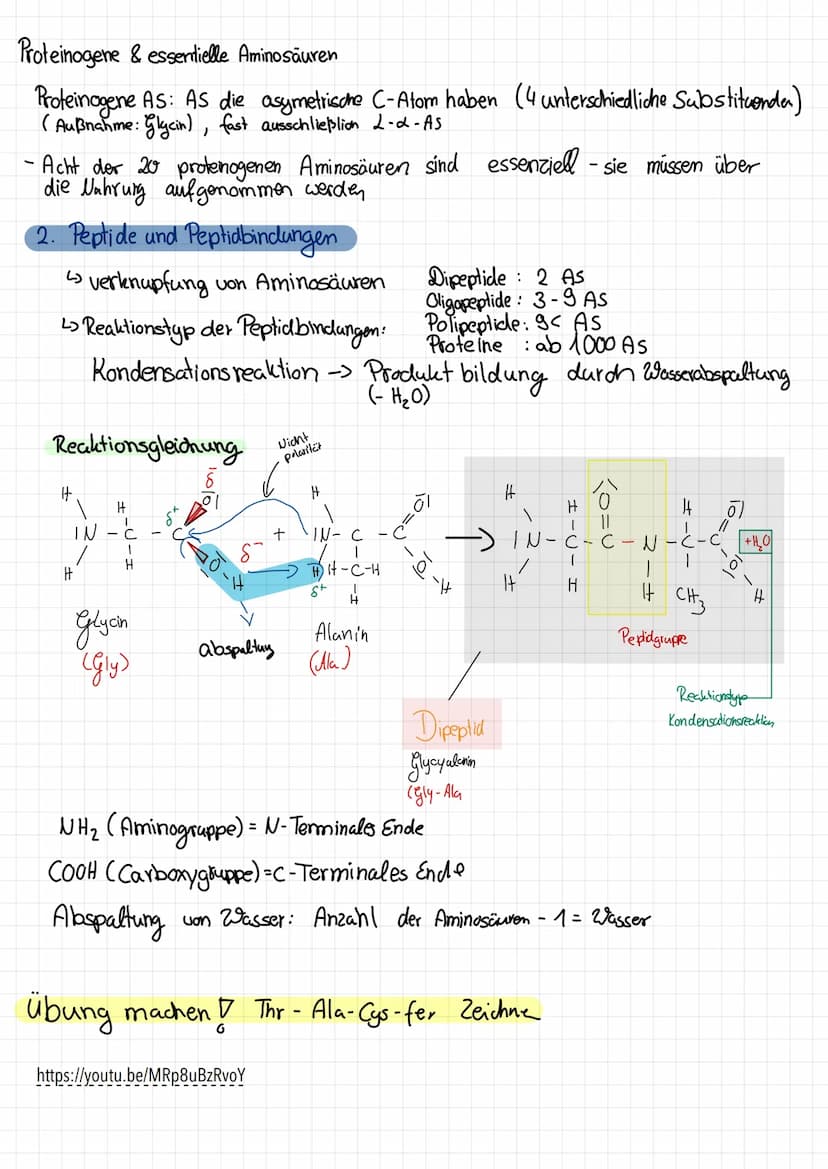 Proteinogene & essentielle Aminosäuren
Proteinogene AS: AS die asymetrische C-Atom haben (4 unterschiedliche Substituenden)
(Außnahme: Glycin), fast ausschließlich L-α-AS
- Acht der 20 proteinogenen Aminosäuren sind essenziell - sie müssen über
die Nahrung aufgenommen werden
2. Peptide und Peptidbindungen
↳ verknüpfung von Aminosäuren
Dipeptide : 2 AS
Oligopeptide : 3-9 AS
↳ Reaktionstyp der Peptidbindungen:
Polipeptide: 9< AS
Proteine : ab 1000 AS
Kondensationsreaktion -> Produkt bildung durch Wasserabspaltung
(- H₂O)
Reaktionsgleichung
Nicht
polarität
H H H H H H
δ⁺ δ⁻ δ⁻ δ⁺
IN - C - C + IN - C - C → IN - C - C - N - C - C +H₂O
H H H-C-H H H H CH₃ H
Glycin
(Gly)
Abspaltung
Alanin
(Ala)
Peptidgruppe
Reaktionstype
Kondensationsreaktion
Dipeptid
Glycyalanin
(Gly-Ala
NH₂ (Aminogruppe) = N-Terminales Ende
COOH (Carboxygruppe) = C-Terminales Ende
Abspaltung von Wasser: Anzahl der Aminosäuren - 1 = Wasser
Übung machen! Thr - Ala-Cys-fer Zeichne
https://youtu.be/MRp8uBzRvoY